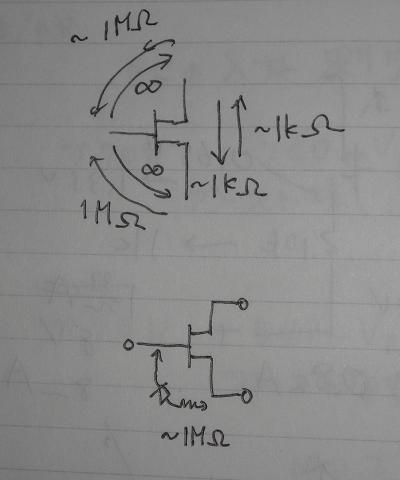 ~ 1MΩ
∞
~1kΩ
∞
~1kΩ
1MΩ
~1MΩ